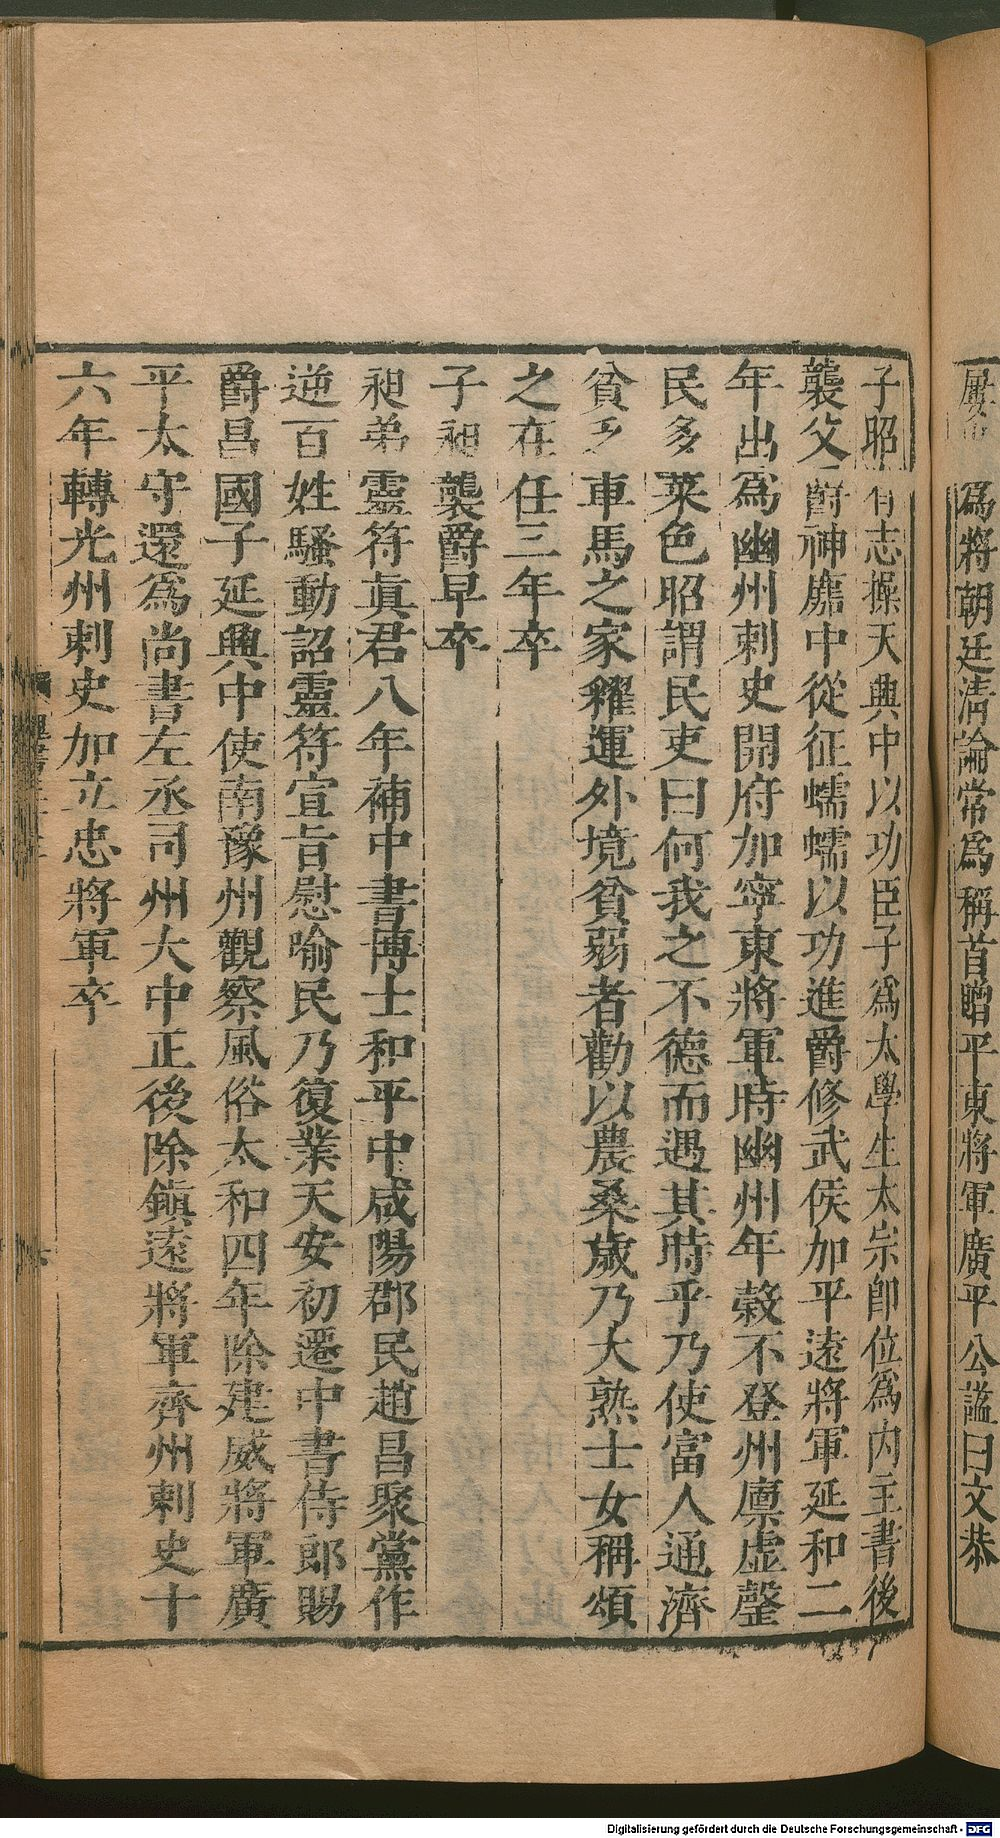 屢 為將朝廷清論常為稱首贈平東將軍廣平公諡曰文恭
子昭有志操天興中以功臣子為太學生太宗卽位為內主書後
襲父爵神䴥中從征蠕蠕以功進爵修武侯加平遠將軍延和二
年出為幽州刺史開府加寧東將軍時幽州年穀不登州廪虛罄
民多菜色昭謂民吏曰何我之不德而遇其時乎乃使富人通濟
貧乏車馬之家糴運外境貧弱者勸以農桑歲乃大熟士女稱頌
之在任三年卒
子昶襲爵早卒
昶弟靈符眞君八年補中書博士和平中咸陽郡民趙昌聚黨作
逆百姓騷動詔靈符宣旨慰喻民乃復業天安初遷中書侍郎賜
爵昌國子延興中使南豫州觀察風俗太和四年除建威將軍廣
平太守還為尚書左丞司州大中正後除鎮遠將軍齊州刺史十
六年轉光州刺史加立忠將軍卒
Digitalisierung gefördert durch die Deutsche Forschungsgemeinschaft - DFG